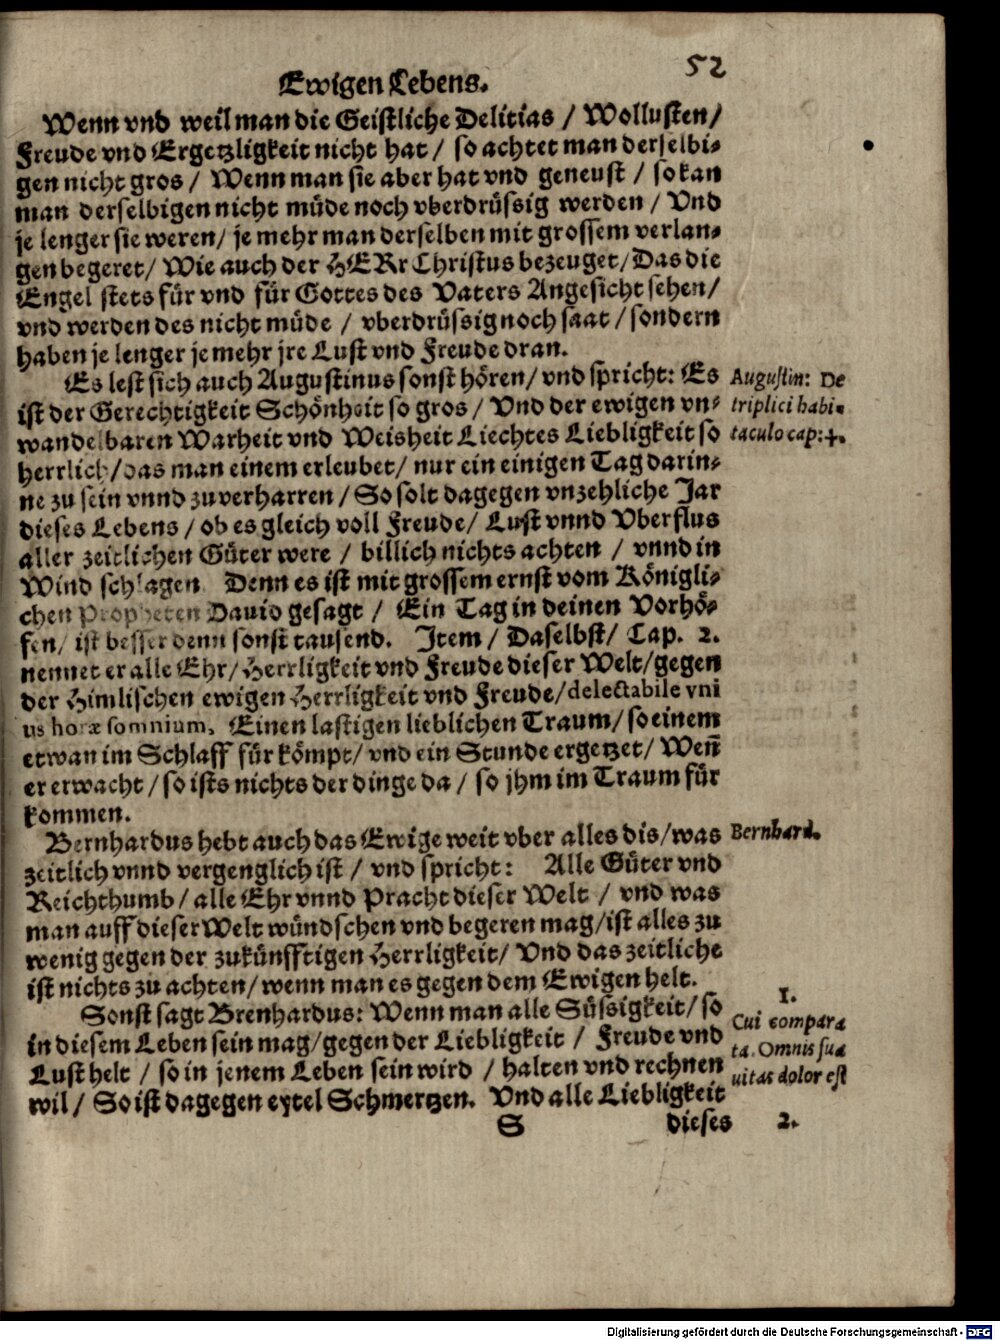 Ewigen Lebens.
52
Wenn vnd weil man die Geistliche Delitias / Wollusten /
Freude vnd Ergetzligkeit nicht hat / so achtet man derselbi-
gen nicht gros / Wenn man sie aber hat vnd geneust / so kan
man derselbigen nicht müde noch vberdrüssig werden / Vnd
je lenger sie weren / je mehr man derselben mit grossem verlan-
gen begeret / Wie auch der HERr Christus bezeuget / Das die
Engel stets für vnd für Gottes des Vaters Angesicht sehen /
vnd werden des nicht müde / vberdrüssig noch saat / sondern
haben je lenger je mehr jre Lust vnd Freude dran.
Es lest sich auch Augustinus sonst hören / vnd spricht: Es
ist der Gerechtigkeit Schönheit so gros / Vnd der ewigen vn-
wandelbaren Warheit vnd Weisheit Liechtes Liebligkeit so
herrlich / das man einem erleubet / nur ein einigen Tag darin-
ne zu sein vnnd zu verharren / So solt dagegen vnzehliche Jar
dieses Lebens / ob es gleich voll Freude / Lust vnnd Vberflus
aller zeitlichen Güter were / billich nichts achten / vnnd in
Wind schlagen Denn es ist mit grossem ernst vom Königli-
chen Propheten Dauid gesagt / Ein Tag in deinen Vorhö-
fen / ist besser denn sonst tausend. Item / Daselbst / Cap. 2.
nennet er alle Ehr / Herrligkeit vnd Freude dieser Welt / gegen
der Himlischen ewigen Herrligkeit vnd Freude / delectabile vni
us horæ somnium, Einen lastigen lieblichen Traum / so einem
etwan im Schlaff für kömpt / vnd ein Stunde ergetzet / Weñ
er erwacht / so ists nichts der dinge da / so jhm im Traum für
kommen.
Bernhardus hebt auch das Ewige weit vber alles dis / was
zeitlich vnnd vergenglich ist / vnd spricht: Alle Güter vnd
Reichthumb / alle Ehr vnnd Pracht dieser Welt / vnd was
man auff dieser Welt wündschen vnd begeren mag / ist alles zu
wenig gegen der zukünfftigen Herrligkeit / Vnd das zeitliche
ist nichts zu achten / wenn man es gegen dem Ewigen helt.
Sonst sagt Brenhardus: Wenn man alle Süssigkeit / so
in diesem Leben sein mag / gegen der Liebligkeit / Freude vnd
Lust helt / so in jenem Leben sein wird / halten vnd rechnen
wil / So ist dagegen eytel Schmertzen. Vnd alle Liebligkeit
S dieses
Augustin: De
triplici habi-
taculo cap: 4.
Bernhard.
1.
Cui compara
ta. Omnis sua
uitas dolor est
2.
Digitalisierung gefördert durch die Deutsche Forschungsgemeinschaft - DFG